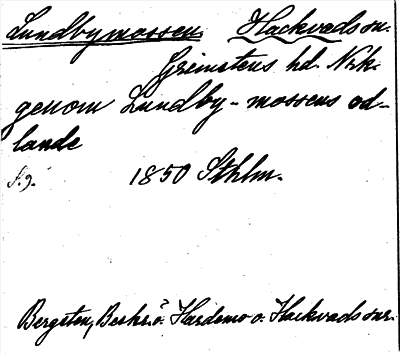 Lundbymossen Hackvads sn.
Grimstens hd. Nrk.
genom Lundby-mossens od-
lande
s. 9. 1850 Sthlm.
Bergsten, Beskr. ö. Hardemo o. Hackvads snr.